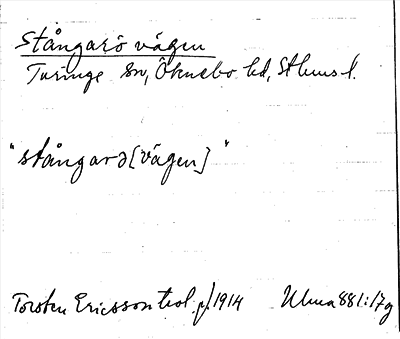 Stångarö vägen
Turinge sn, Öknebo hd, Sthms l.
"stångarə [vägen]"
Torsten Ericsson teol. 1914 Ulma 881:17 g